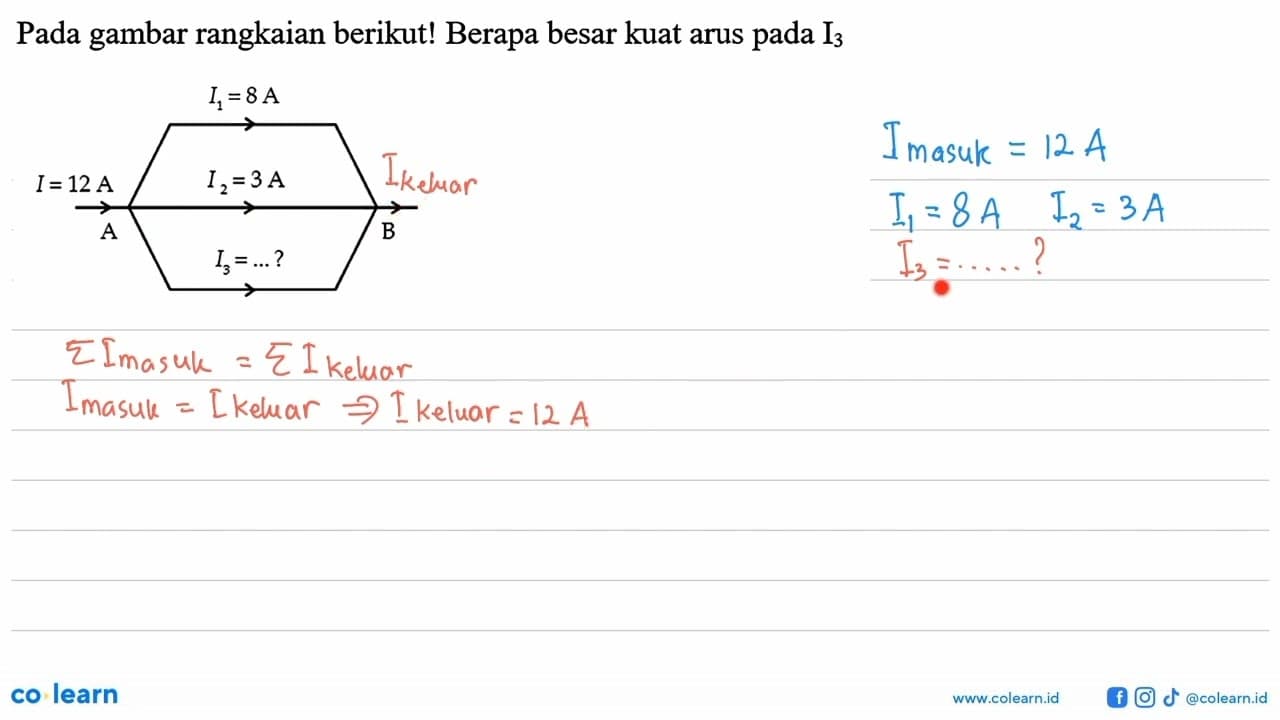 Pada gambar rangkaian berikut! Berapa besar kuat arus pada I₃
I₁ = 8 A
I = 12 A
I₂ = 3 A
I keluar
A
B
I₃ = ... ?
I masuk = 12 A
I₁ = 8 A I₂ = 3 A
I₃ = ..... ?
Σ I masuk = Σ I keluar
I masuk = I keluar ⇒ I keluar = 12 A
co learn
www.colearn.id
@colearn.id